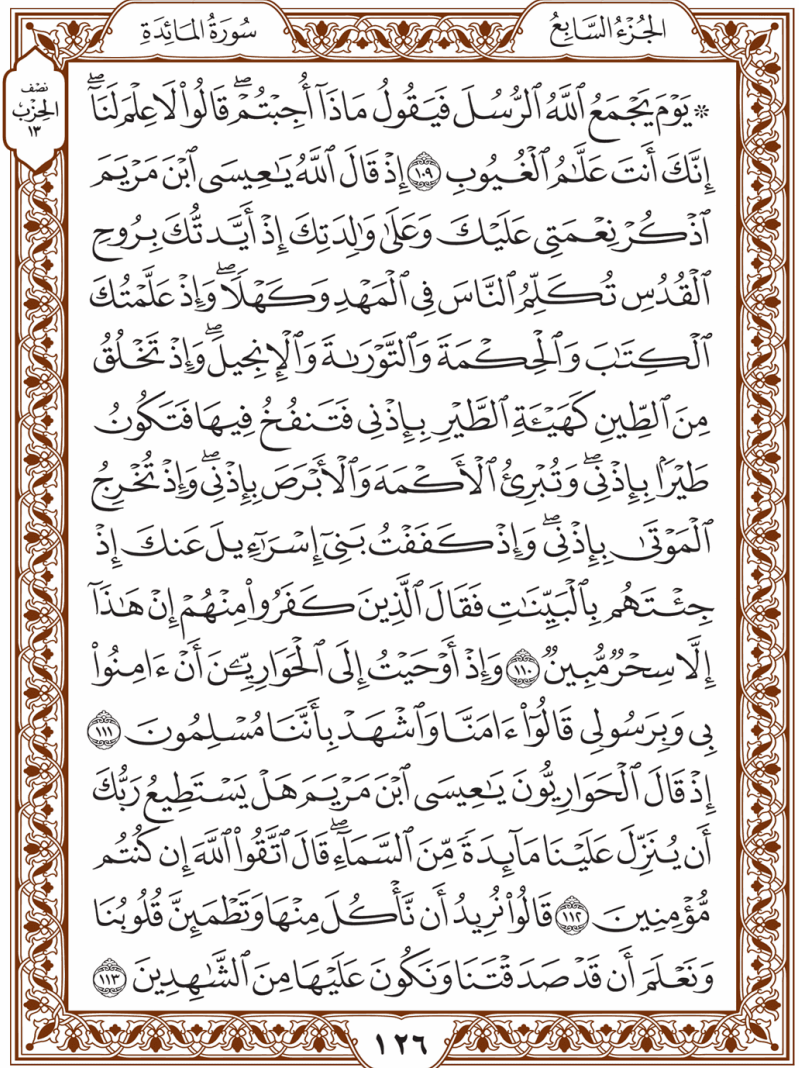 الجُزْءُ السَّابِعُ
سُورَةُ المَائِدَةِ
نصف
الحزب
١٣
۞ يَوۡمَ يَجۡمَعُ ٱللَّهُ ٱلرُّسُلَ فَيَقُولُ مَاذَآ أُجِبۡتُمۡۖ قَالُواْ لَا عِلۡمَ لَنَآۖ
إِنَّكَ أَنتَ عَلَّٰمُ ٱلۡغُيُوبِ ١٠٩ إِذۡ قَالَ ٱللَّهُ يَٰعِيسَى ٱبۡنَ مَرۡيَمَ
ٱذۡكُرۡ نِعۡمَتِي عَلَيۡكَ وَعَلَىٰ وَٰلِدَتِكَ إِذۡ أَيَّدتُّكَ بِرُوحِ
ٱلۡقُدُسِ تُكَلِّمُ ٱلنَّاسَ فِي ٱلۡمَهۡدِ وَكَهۡلٗاۖ وَإِذۡ عَلَّمۡتُكَ
ٱلۡكِتَٰبَ وَٱلۡحِكۡمَةَ وَٱلتَّوۡرَىٰةَ وَٱلۡإِنجِيلَۖ وَإِذۡ تَخۡلُقُ
مِنَ ٱلطِّينِ كَهَيۡـَٔةِ ٱلطَّيۡرِ بِإِذۡنِي فَتَنفُخُ فِيهَا فَتَكُونُ
طَيۡرَۢا بِإِذۡنِيۖ وَتُبۡرِئُ ٱلۡأَكۡمَهَ وَٱلۡأَبۡرَصَ بِإِذۡنِيۖ وَإِذۡ تُخۡرِجُ
ٱلۡمَوۡتَىٰ بِإِذۡنِيۖ وَإِذۡ كَفَفۡتُ بَنِيٓ إِسۡرَٰٓءِيلَ عَنكَ إِذۡ
جِئۡتَهُم بِٱلۡبَيِّنَٰتِ فَقَالَ ٱلَّذِينَ كَفَرُواْ مِنۡهُمۡ إِنۡ هَٰذَآ
إِلَّا سِحۡرٞ مُّبِينٞ ١١٠ وَإِذۡ أَوۡحَيۡتُ إِلَى ٱلۡحَوَارِيِّـۧنَ أَنۡ ءَامِنُواْ
بِي وَبِرَسُولِي قَالُوٓاْ ءَامَنَّا وَٱشۡهَدۡ بِأَنَّنَا مُسۡلِمُونَ ١١١
إِذۡ قَالَ ٱلۡحَوَارِيُّونَ يَٰعِيسَى ٱبۡنَ مَرۡيَمَ هَلۡ يَسۡتَطِيعُ رَبُّكَ
أَن يُنَزِّلَ عَلَيۡنَا مَآئِدَةٗ مِّنَ ٱلسَّمَآءِۖ قَالَ ٱتَّقُواْ ٱللَّهَ إِن كُنتُم
مُّؤۡمِنِينَ ١١٢ قَالُواْ نُرِيدُ أَن نَّأۡكُلَ مِنۡهَا وَتَطۡمَئِنَّ قُلُوبُنَا
وَنَعۡلَمَ أَن قَدۡ صَدَقۡتَنَا وَنَكُونَ عَلَيۡهَا مِنَ ٱلشَّٰهِدِينَ ١١٣
١٢٦